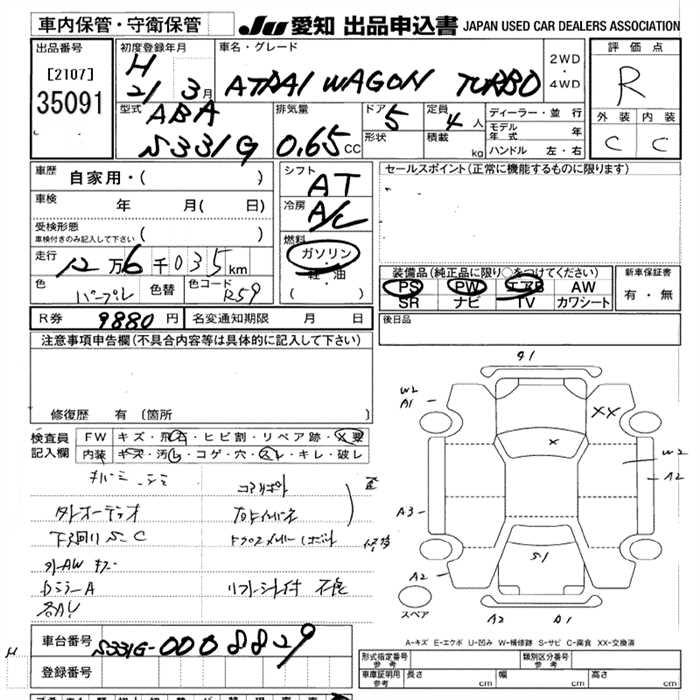 車内保管・守衛保管
JU 愛知 出品申込書 JAPAN USED CAR DEALERS ASSOCIATION
出品番号
[2107]
35091
初度登録年月
H 21 3月
車名・グレード
ATRAI WAGON TURBO
2WD・4WD
評価点
R
外装 内装
C C
型式
ABA
S331G
排気量
0.65CC
ドア
5
形状
定員
4人
積載
kg
ディーラー・並行
モデル年式 年
ハンドル 左・右
車歴 自家用・( )
車検 年 月( 日)
受検形態
車検付きのみ記入して下さい ( )
走行 12万6千035km
色 パープル 色替 色コード R59
シフト
AT
冷房
A/C
燃料
ガソリン
軽・油
( )
セールスポイント(正常に機能するものに限ります)
装備品(純正品に限り○をつけてください)
PS PW エアB AW
SR ナビ TV カワシート
新車保証書
有・無
R券 9880円 名変通知期限 月 日
後日品
注意事項申告欄(不具合内容等は具体的に記入して下さい)
修復歴 有〔箇所 〕
検査員記入欄
FW キズ・飛石・ヒビ割・リペア跡・X要
内装 キズ・汚レ・コゲ・穴・スレ・キレ・破レ
下廻り S.C
外AW キズ
ドラミラーA
リフトシート付
G1
W2
A1
XX
X
W2
A2
A3
S1
A2
スペア
A2
A1
A-キズ E-エクボ U-凹み W-補修跡 S-サビ C-腐食 XX-交換済
車台番号 S331G-0008829
登録番号
型式指定番号
参考
類別区分番号
参考
車庫証明用
参考
長さ cm 幅 cm 高さ cm